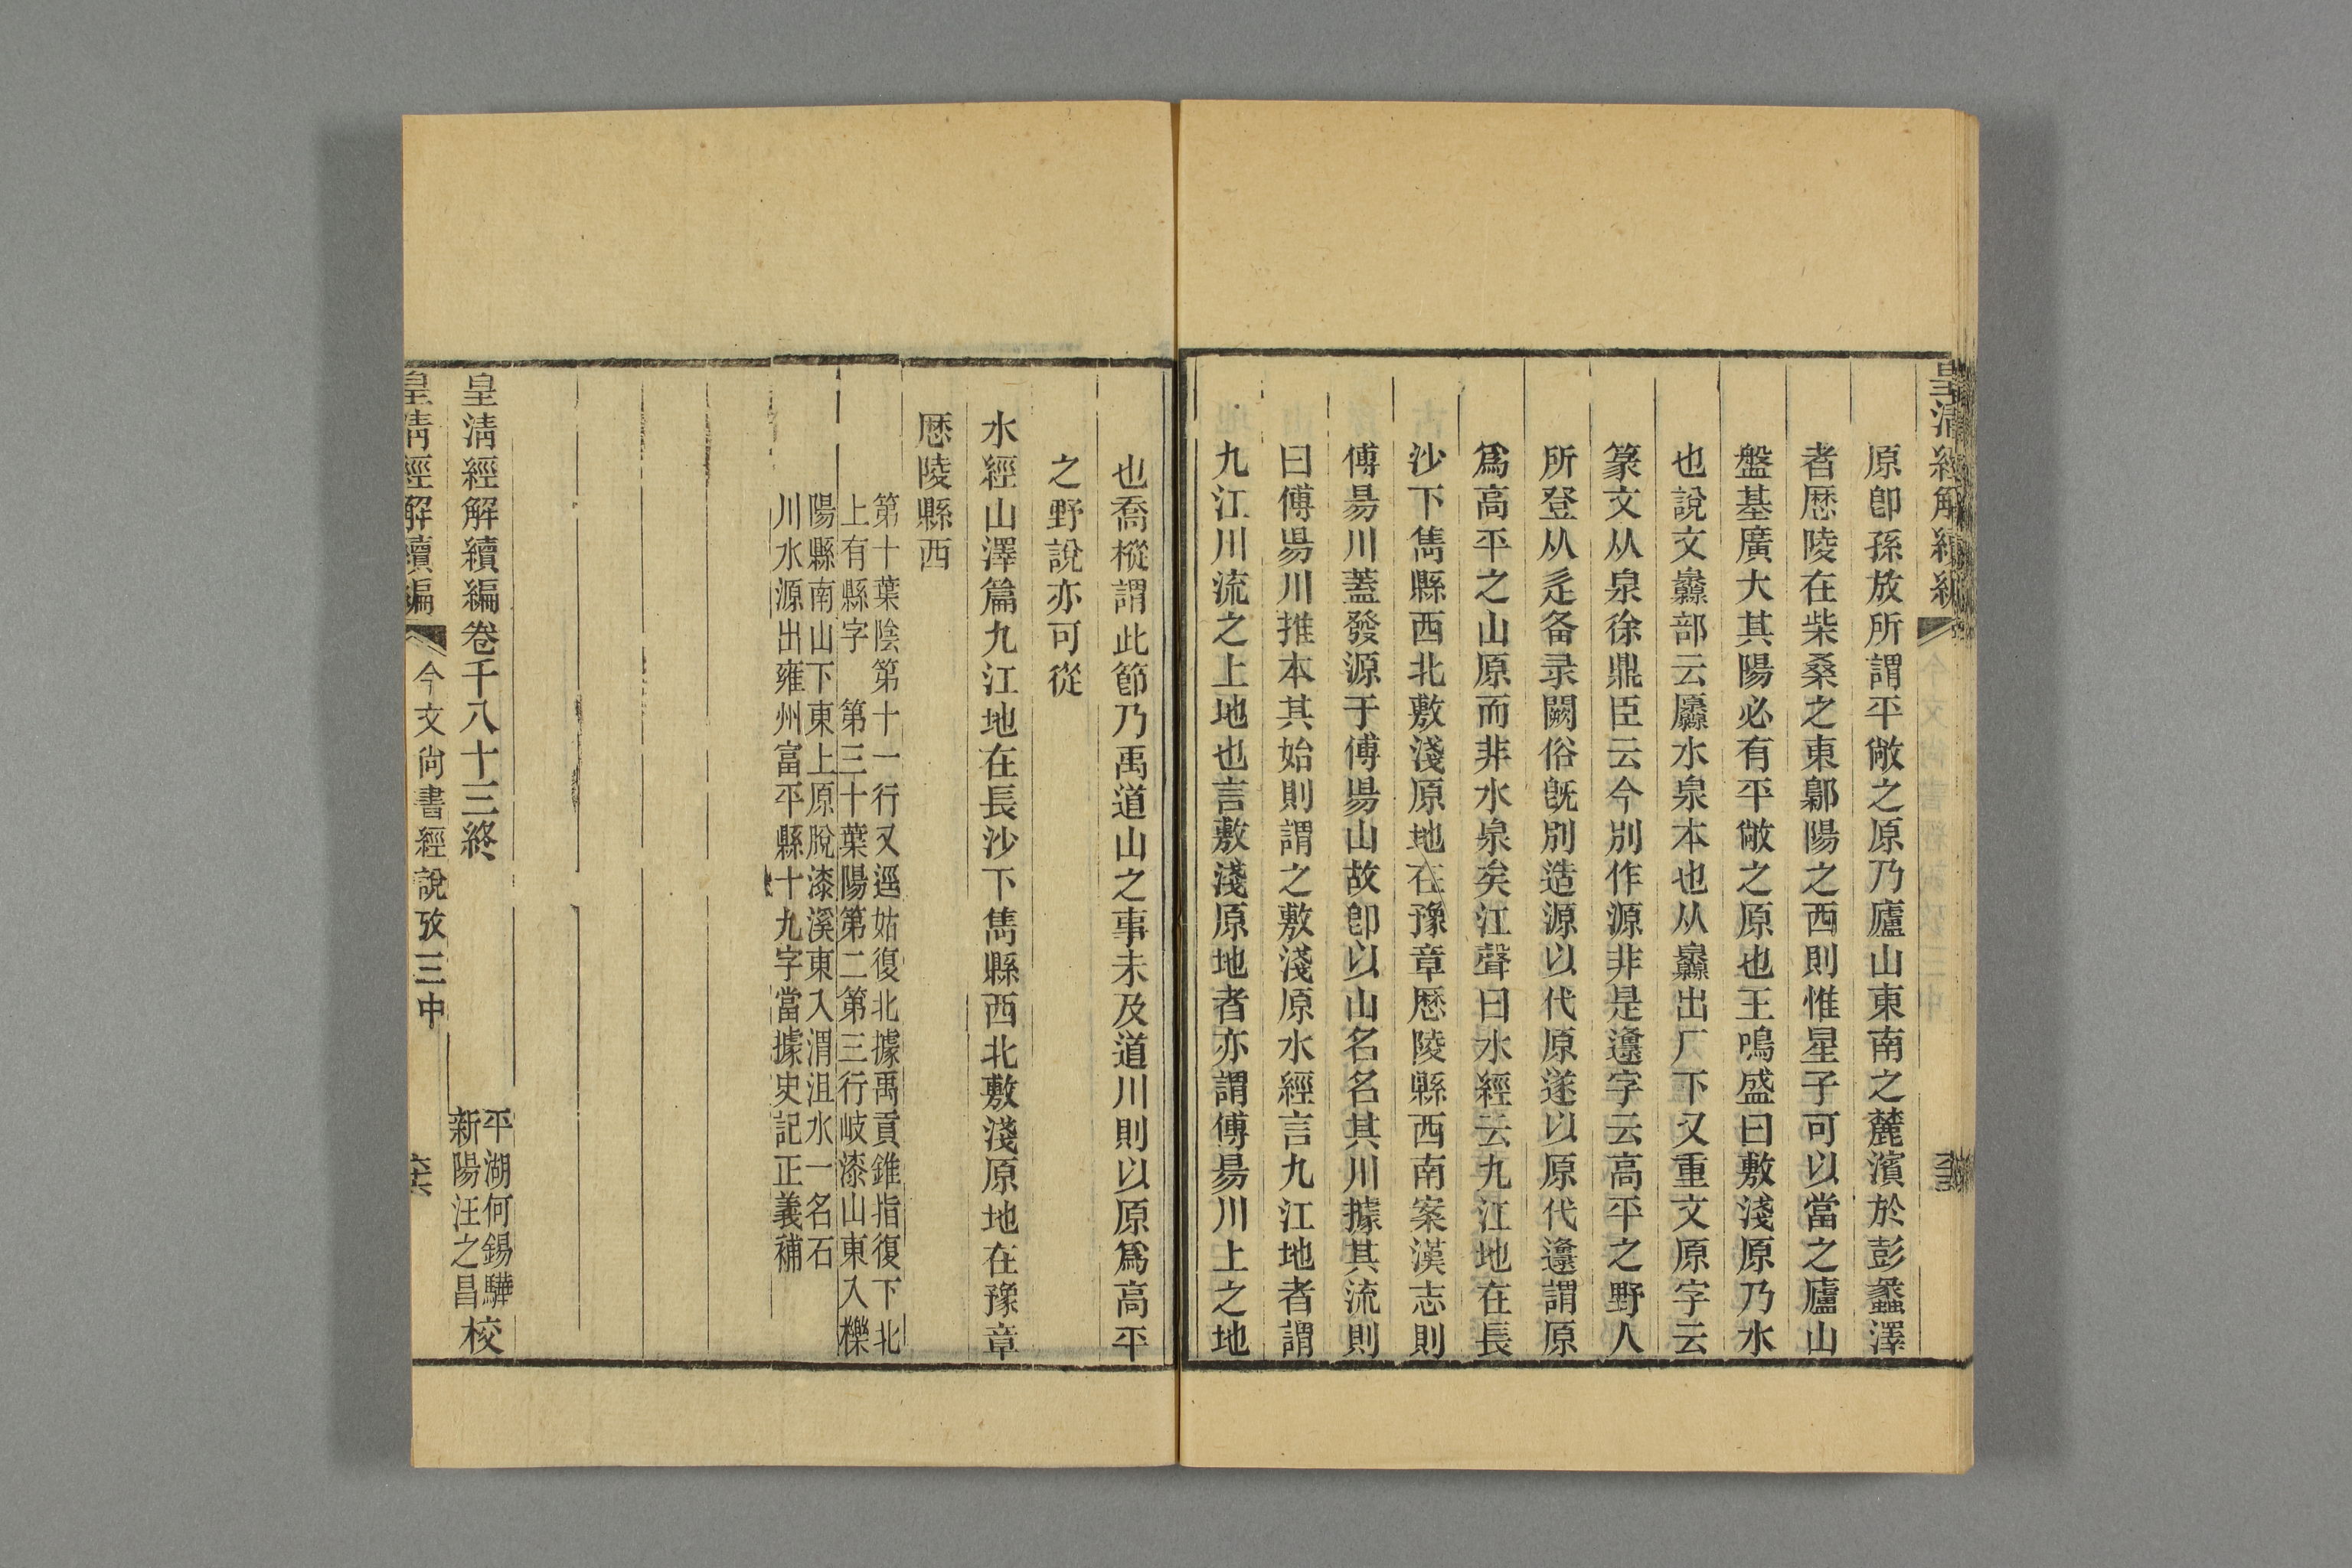 皇清經解續編
原卽孫放所謂平敞之原乃廬山東南之麓濱於彭蠡澤
者厯陵在柴桑之東鄡陽之西則惟星子可以當之廬山
盤基廣大其陽必有平敞之原也王鳴盛曰敷淺原乃水
也說文灥部云厵水泉本也从灥出厂下又重文原字云
篆文从泉徐鼎臣云今別作源非是邍字云高平之野人
所登从辵备彔闕俗旣別造源以代原遂以原代邍謂原
爲高平之山原而非水泉矣江聲曰水經云九江地在長
沙下雋縣西北敷淺原地在豫章厯陵縣西南案漢志則
傅昜川蓋發源于傅昜山故卽以山名名其川據其流則
曰傅昜川推本其始則謂之敷淺原水經言九江地者謂
九江川流之上地也言敷淺原地者亦謂傅昜川上之地
也喬樅謂此節乃禹道山之事未及道川則以原爲高平
之野說亦可從
水經山澤篇九江地在長沙下雋縣西北敷淺原地在豫章
厯陵縣西
第十葉陰第十一行又逕姑復北據禹貢錐指復下北
上有縣字　第三十葉陽第二第三行岐漆山東入櫟
陽縣南山下東上原脫漆溪東入渭沮水一名石
川水源出雍州富平縣十九字當據史記正義補
皇清經解續編卷千八十三終
平湖何錫驊
新陽汪之昌
校
皇清經解續編
今文尙書經說攷三中